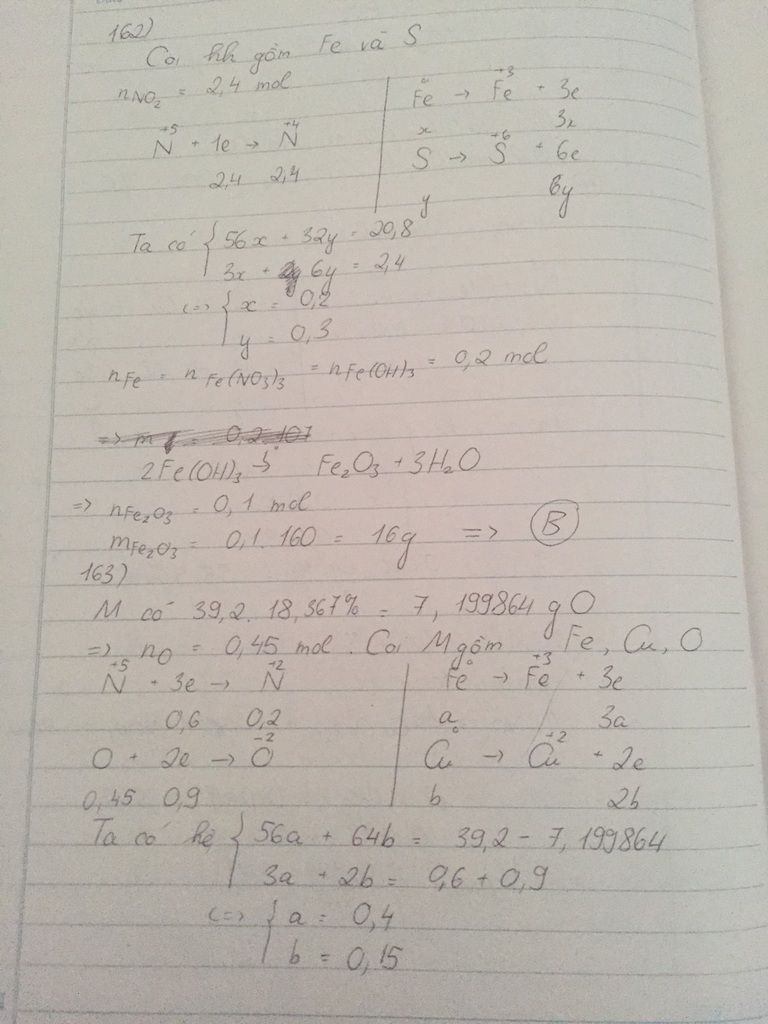 162)
Coi hh gồm Fe và S
nNO2 = 2,4 mol
+5 N + 1e → +4 N
2,4 2,4
0 Fe → +3 Fe + 3e
x 3x
S → +6 S + 6e
y 6y
Ta có { 56x + 32y = 20,8
3x + 6y = 2,4
<=> { x = 0,2
y = 0,3
nFe = nFe(NO3)3 = nFe(OH)3 = 0,2 mol
=> m = 0,2.107
2Fe(OH)3 → Fe2O3 + 3H2O
=> nFe2O3 = 0,1 mol
mFe2O3 = 0,1.160 = 16g => B
163)
M có 39,2.18,367% = 7,199864 g O
=> nO = 0,45 mol. Coi M gồm Fe, Cu, O
+5 N + 3e → +2 N
0,6 0,2
O + 2e → -2 O
0,45 0,9
0 Fe → +3 Fe + 3e
a 3a
0 Cu → +2 Cu + 2e
b 2b
Ta có hệ { 56a + 64b = 39,2 - 7,199864
3a + 2b = 0,6 + 0,9
<=> { a = 0,4
b = 0,15